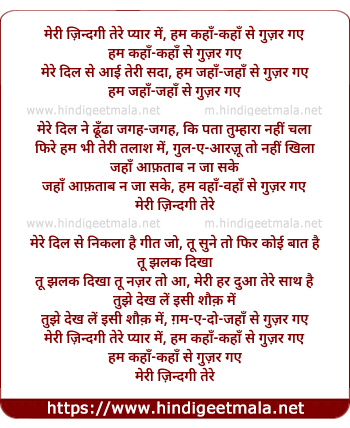 मेरी ज़िन्दगी तेरे प्यार में, हम कहाँ-कहाँ से गुज़र गए
हम कहाँ-कहाँ से गुज़र गए
मेरे दिल से आई तेरी सदा, हम जहाँ-जहाँ से गुज़र गए
हम जहाँ-जहाँ से गुज़र गए
www.hindigeetmala.net m.hindigeetmala.net
मेरे दिल ने ढूँढा जगह-जगह, कि पता तुम्हारा नहीं चला
फिरे हम भी तेरी तलाश में, गुल-ए-आरज़ू तो नहीं खिला
जहाँ आफ़ताब न जा सके
जहाँ आफ़ताब न जा सके, हम वहाँ-वहाँ से गुज़र गए
मेरी ज़िन्दगी तेरे
www.hindigeetmala.net m.hindigeetmala.net
मेरे दिल से निकला है गीत जो, तू सुने तो फिर कोई बात है
तू झलक दिखा
तू झलक दिखा तू नज़र तो आ, मेरी हर दुआ तेरे साथ है
तुझे देख लें इसी शौक़ में
तुझे देख लें इसी शौक़ में, ग़म-ए-दो-जहाँ से गुज़र गए
मेरी ज़िन्दगी तेरे प्यार में, हम कहाँ-कहाँ से गुज़र गए
हम कहाँ-कहाँ से गुज़र गए
मेरी ज़िन्दगी तेरे
https://www.hindigeetmala.net